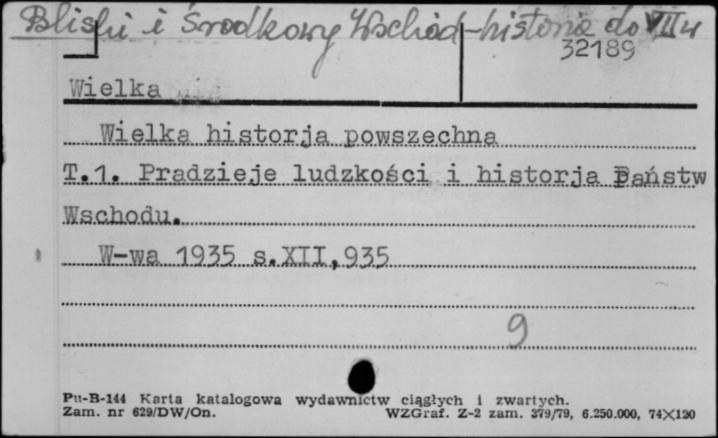 Bliski i Środkowy Wschód - historia do VII w
32189
Wielka
Wielka historja powszechna
T.1. Pradzieje ludzkości i historja Państw
Wschodu.
W-wa 1935 s.XII,935
9
Pu-B-144 Karta katalogowa wydawnictw ciągłych i zwartych.
Zam. nr 629/DW/On. WZGraf. Z-2 zam. 379/79, 6.250.000, 74×120